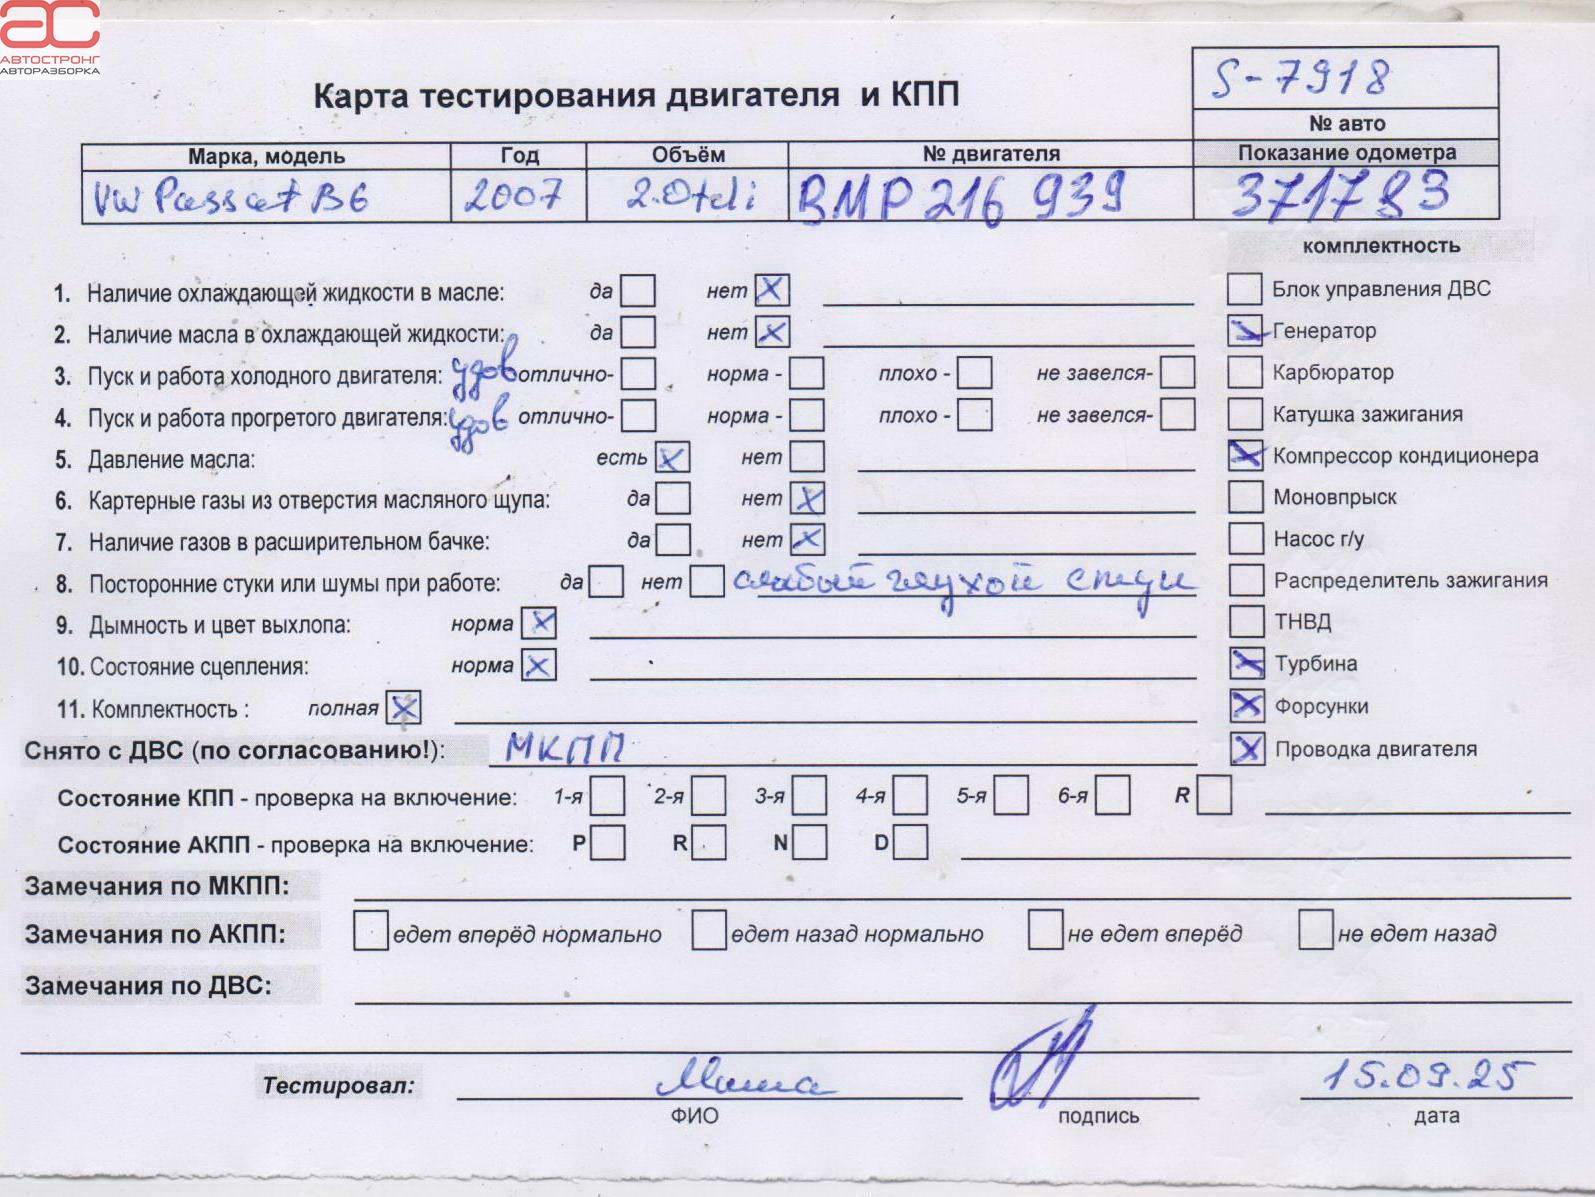 АС
АВТОСТРОНГ
АВТОРАЗБОРКА
S-7918
Карта тестирования двигателя и КПП
№ авто
Марка, модель Год Объём № двигателя Показание одометра
VW Passat B6 2007 2.0tdi BMP 216 939 371783
комплектность
1. Наличие охлаждающей жидкости в масле: да нет X Блок управления ДВС
2. Наличие масла в охлаждающей жидкости: да нет X Генератор
3. Пуск и работа холодного двигателя: удов отлично- норма - плохо - не завелся- Карбюратор
4. Пуск и работа прогретого двигателя: удов отлично- норма - плохо - не завелся- Катушка зажигания
5. Давление масла: есть X нет X Компрессор кондиционера
6. Картерные газы из отверстия масляного щупа: да нет X Моновпрыск
7. Наличие газов в расширительном бачке: да нет X Насос г/у
8. Посторонние стуки или шумы при работе: да нет слабый глухой стук Распределитель зажигания
9. Дымность и цвет выхлопа: норма X ТНВД
10. Состояние сцепления: норма X X Турбина
11. Комплектность : полная X X Форсунки
Снято с ДВС (по согласованию!): МКПП X Проводка двигателя
Состояние КПП - проверка на включение: 1-я 2-я 3-я 4-я 5-я 6-я R
Состояние АКПП - проверка на включение: P R N D
Замечания по МКПП:
Замечания по АКПП: едет вперёд нормально едет назад нормально не едет вперёд не едет назад
Замечания по ДВС:
Тестировал: Миша 15.09.25
ФИО подпись дата